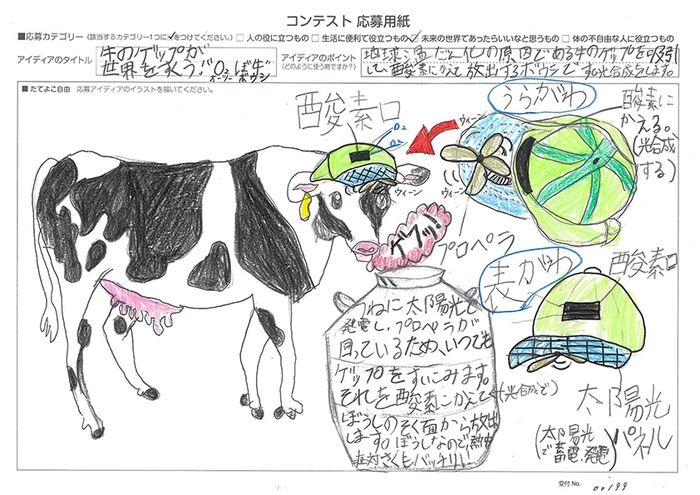 コンテスト 応募用紙
■応募カテゴリー(該当するカテゴリー1つに✓をつけてください。) □ 人の役に立つもの □ 生活に便利で役立つもの ☑ 未来の世界であったらいいなと思うもの □ 体の不自由な人に役立つもの
アイディアのタイトル
牛のゲップが
世界をすくう!!O₂ しぼ牛
オーツー ボウシ
アイディアのポイント
(どのように使う物ですか?)
地球温だん化の原因である牛のゲップを吸引
し、酸素にかえて放出するボウシです。光合成をします。
■たてよこ自由 応募アイディアのイラストを描いてください。
酸素口
O₂
O₂
ウィーン
ゲップ!
プロペラ
うらがわ
ウィーン
ウィーン
酸素に
かえる。
(光合成
する)
表がわ
酸素口
太陽光
パネル
(太陽光
で蓄電、発電)
つねに太陽光で
発電し、プロペラが
回っているため、いつでも
ゲップをすいこみます。
それを酸素にかえて(光合成で)
ぼうしのそく面から放出
します。ぼうしなので熱中
症対さくもバッチリ!
受付No. 00199